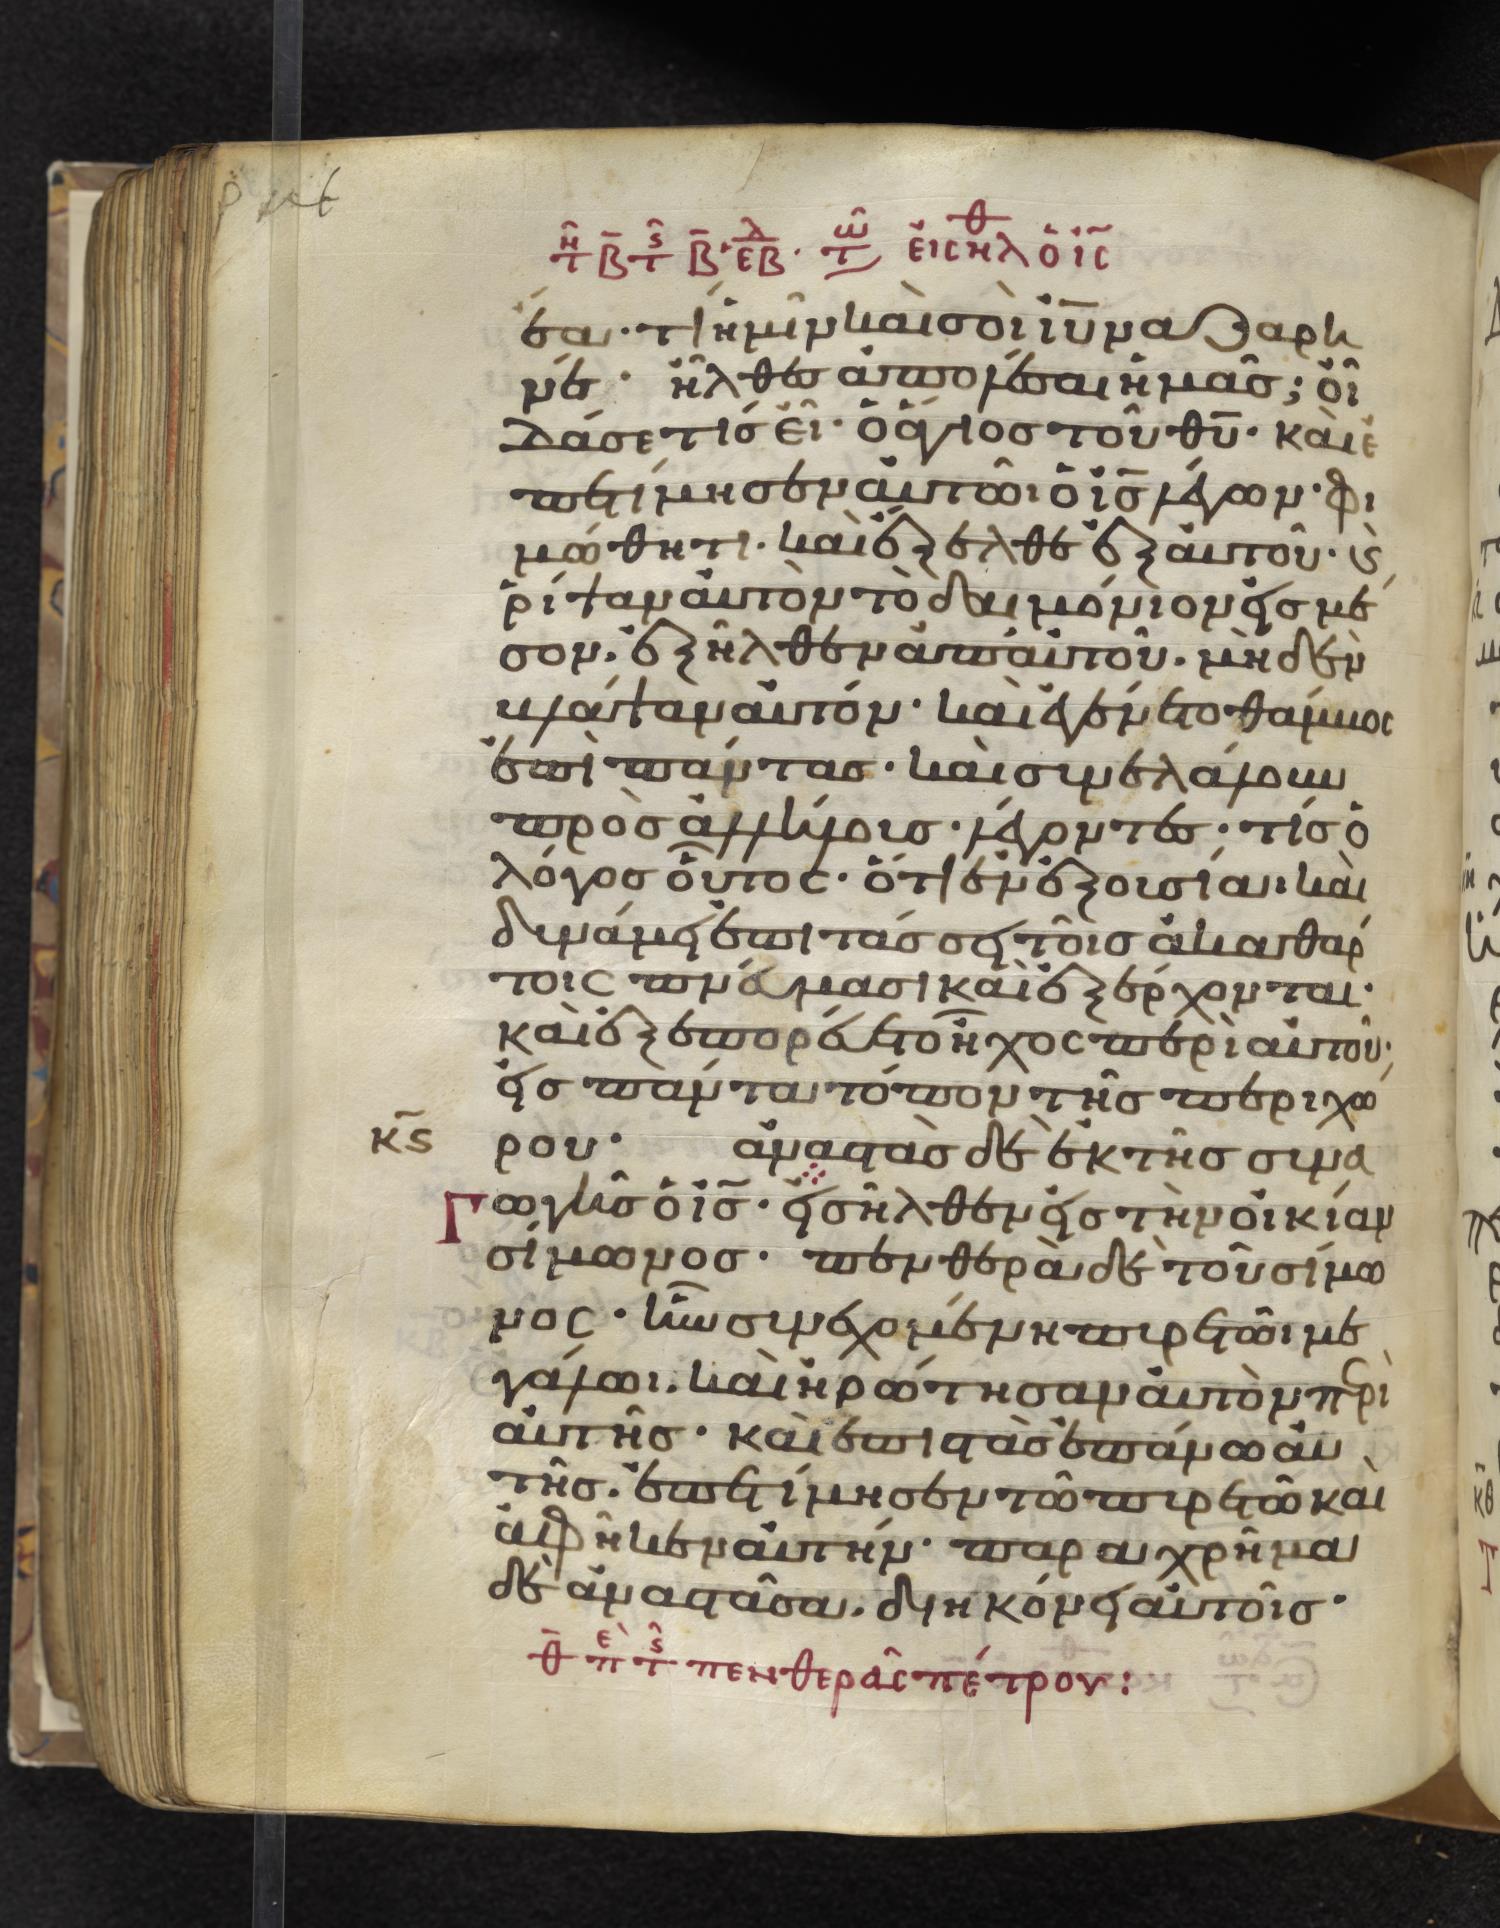 τῆ Β̄ τ ς̑ Β̄· λ ΕΒ· τῶ εἰσῆλθ ὁ ις̄
ἔα· τί ἡμῖν καὶ σοὶ ἰῡ ναζαρη
νέ· ἦλθες ἀπολέσαι ἡμᾶς; οἶ
δά σε τίς εἶ· ὁ ἅγιος τοῦ θῡ· καὶ ἐ
πετίμησεν αὐτῶι ὁ ις̄ λέγων· φι
μώθητι· καὶ ἔξελθε ἐξ αὐτοῦ· ϗ
ρίψαν αὐτὸν τὸ δαιμόνιον εἰς μέ
σον. ἐξῆλθεν ἀπ' αὐτοῦ. μηδὲν
βλάψαν αὐτόν· καὶ ἐγένετο θάμβος
ἐπὶ πάντας· καὶ συνελάλουν
πρὸς ἀλλήλους· λέγοντες· τίς ὁ
λόγος οὗτος· ὅτι ἐν ἐξουσία καὶ
δυνάμει ἐπιτάσσει τοῖς ἀκαθάρ
τοις πνεύμασι καὶ ἐξέρχονται·
καὶ ἐξεπορεύετο ἦχος περὶ αὐτοῦ·
εἰς πάντα τόπον τῆς περιχώ
κς̄ ρου· ἀναστὰς δὲ ἐκ τῆς συνα
Γωγῆς ὁ ις̄· εἰσῆλθεν εἰς τὴν οἰκίαν
σίμωνος· πενθερὰ δὲ τοῦ σίμω
νος· ἦν συνεχομένη πυρετῶι με
γάλωι. καὶ ἠρώτησαν αὐτὸν πρὶ
αὐτῆς· καὶ ἐπιστὰς ἐπάνω αὐ
τῆς. ἐπετίμησεν τῶ πυρετῶ καὶ
ἀφῆκεν αὐτήν· παραχρῆμα
δὲ ἀναστᾶσα. διηκόνει αὐτοῖς·
θ̄ πε τς̑ πενθερᾶς πέτρου: